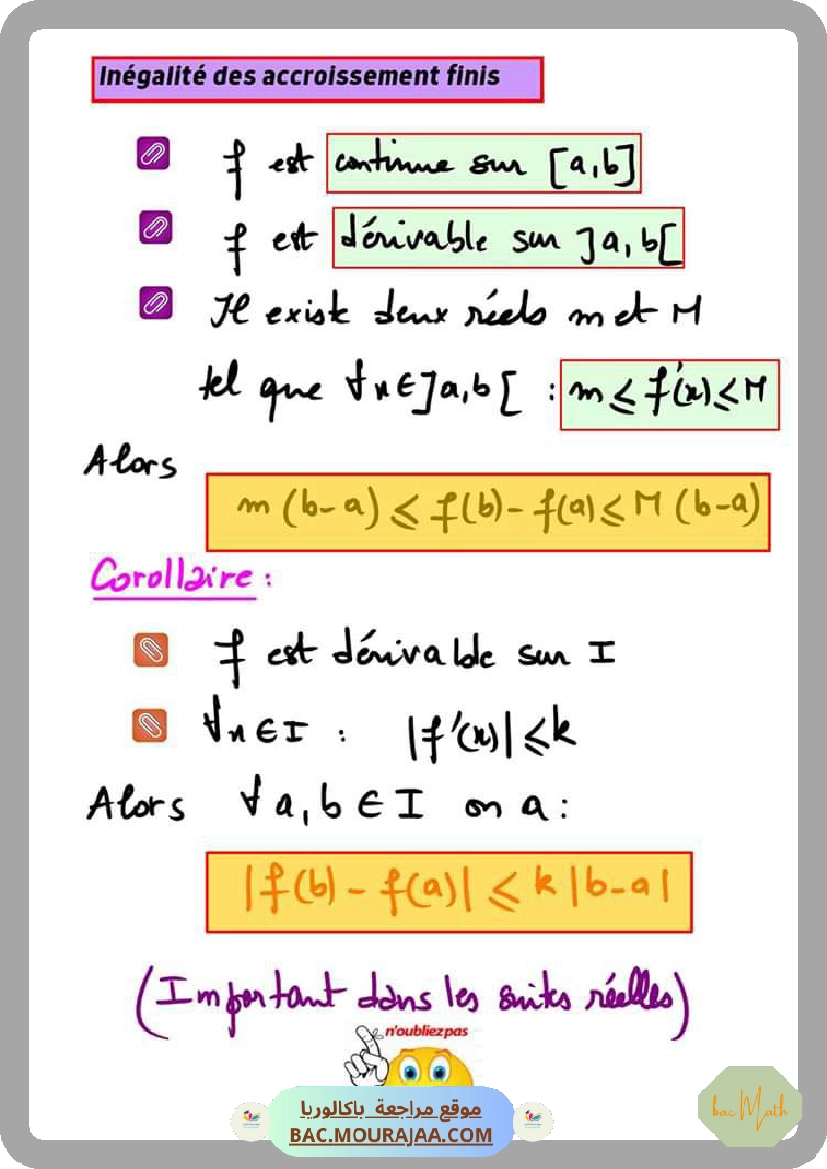 Inégalité des accroissement finis
f est continue sur [a,b]
f est dérivable sur ]a,b[
Il existe deux réels m et M
tel que ∀x∈]a,b[ : m ≤ f'(x) ≤ M
Alors
m (b-a) ≤ f(b) - f(a) ≤ M (b-a)
Corollaire :
f est dérivable sur I
∀x∈I : |f'(x)| ≤ k
Alors ∀ a,b ∈ I on a :
|f(b) - f(a)| ≤ k |b-a|
(Important dans les suites réelles)
n'oubliez pas
موقع مراجعة باكالوريا
BAC.MOURAJAA.COM
bac Math